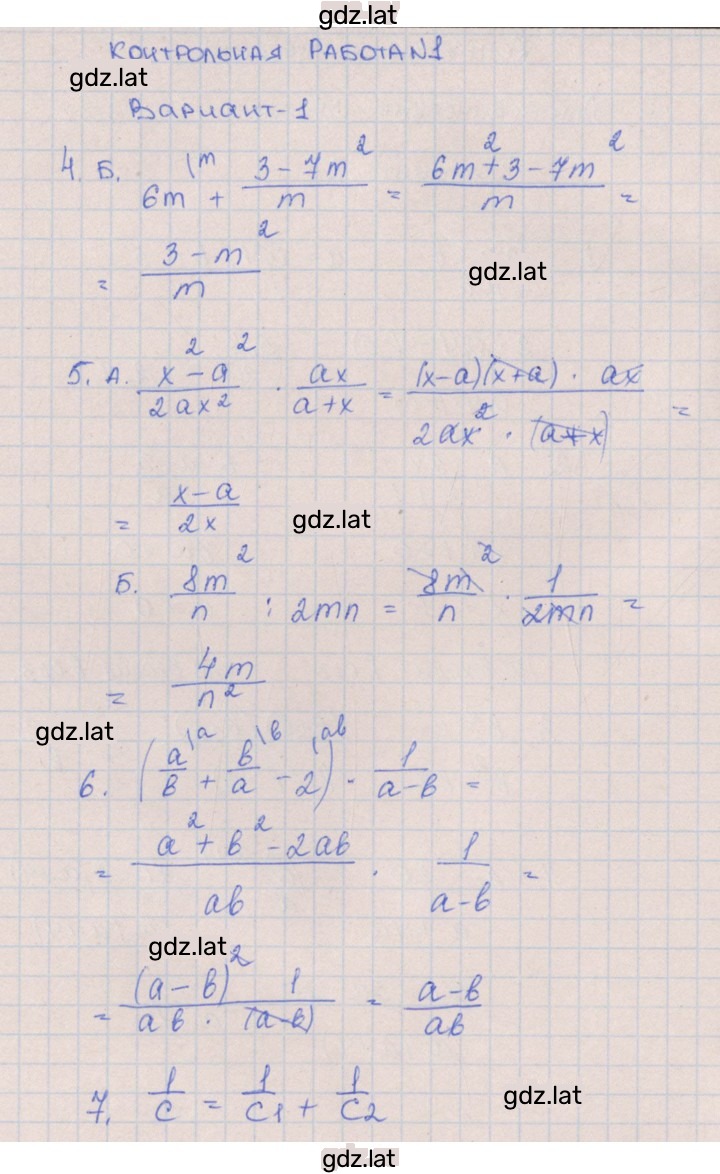 gdz.lat
КОНТРОЛЬНАЯ РАБОТА N1
gdz.lat
Вариант-1
4. Б. 6m \m + (3 - 7m²)/m = (6m² + 3 - 7m²)/m =
= (3 - m²)/m
gdz.lat
5. А. (x² - a²)/(2ax²) · ax/(a+x) = ((x-a)(x+a) · ax)/(2ax² · (a+x)) =
= (x-a)/(2x)
gdz.lat
Б. 8m²/n : 2mn = 8m²/n · 1/(2mn) =
= 4m/n²
gdz.lat
6. (a/в \a + в/a \в - 2 \aв) · 1/(a-в) =
= (a² + в² - 2aв)/(aв) · 1/(a-в) =
gdz.lat
= ((a-в)² 1)/(aв · (a-в)) = (a-в)/(aв)
7. 1/C = 1/C1 + 1/C2
gdz.lat
gdz.lat